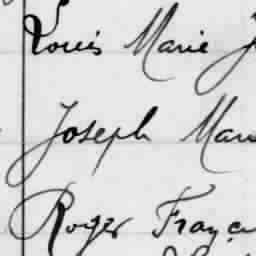 Louis Marie J
Joseph Mar
Roger Franç